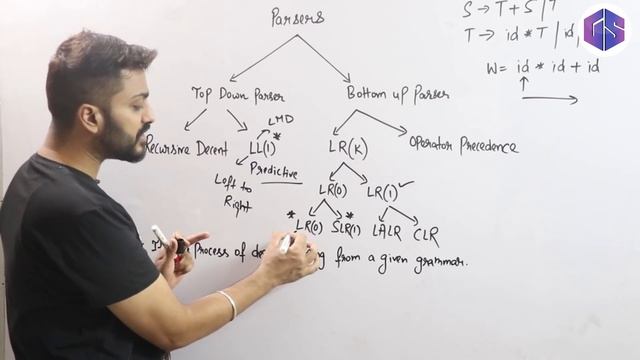 Parsers
S → T + S | T
T → id * T | id
W = id * id + id
Top Down Parser
Bottom up Parser
LMD
Recursive Decent
LL(1) *
LR(K)
Operator Precedence
Predictive
Left to
Right
LR(0)
LR(1) ✓
* LR(0)
SLR(1) *
LALR
CLR
Process of from a given grammar.